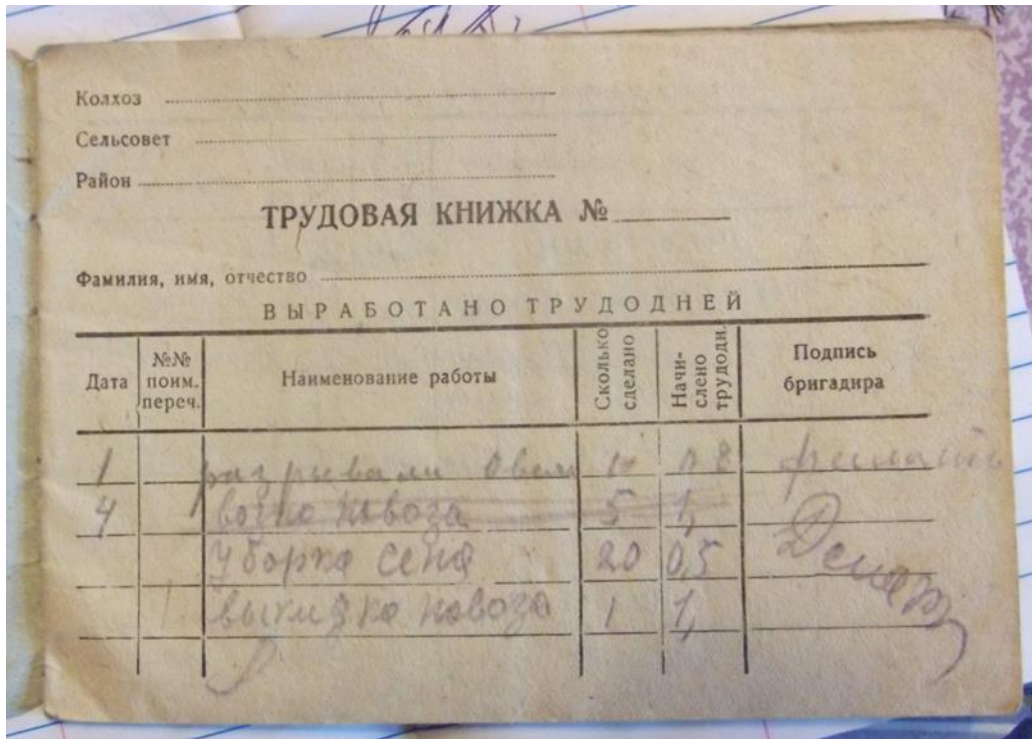 Колхоз
Сельсовет
Район
ТРУДОВАЯ КНИЖКА №
Фамилия, имя, отчество
ВЫРАБОТАНО ТРУДОДНЕЙ
Дата №№ поим. переч. Наименование работы Сколько сделано Начи- слено трудодн. Подпись бригадира
1 разривали
4 возка навоза 5 1,
Уборка сена 20 0,5
навоза 1 1,